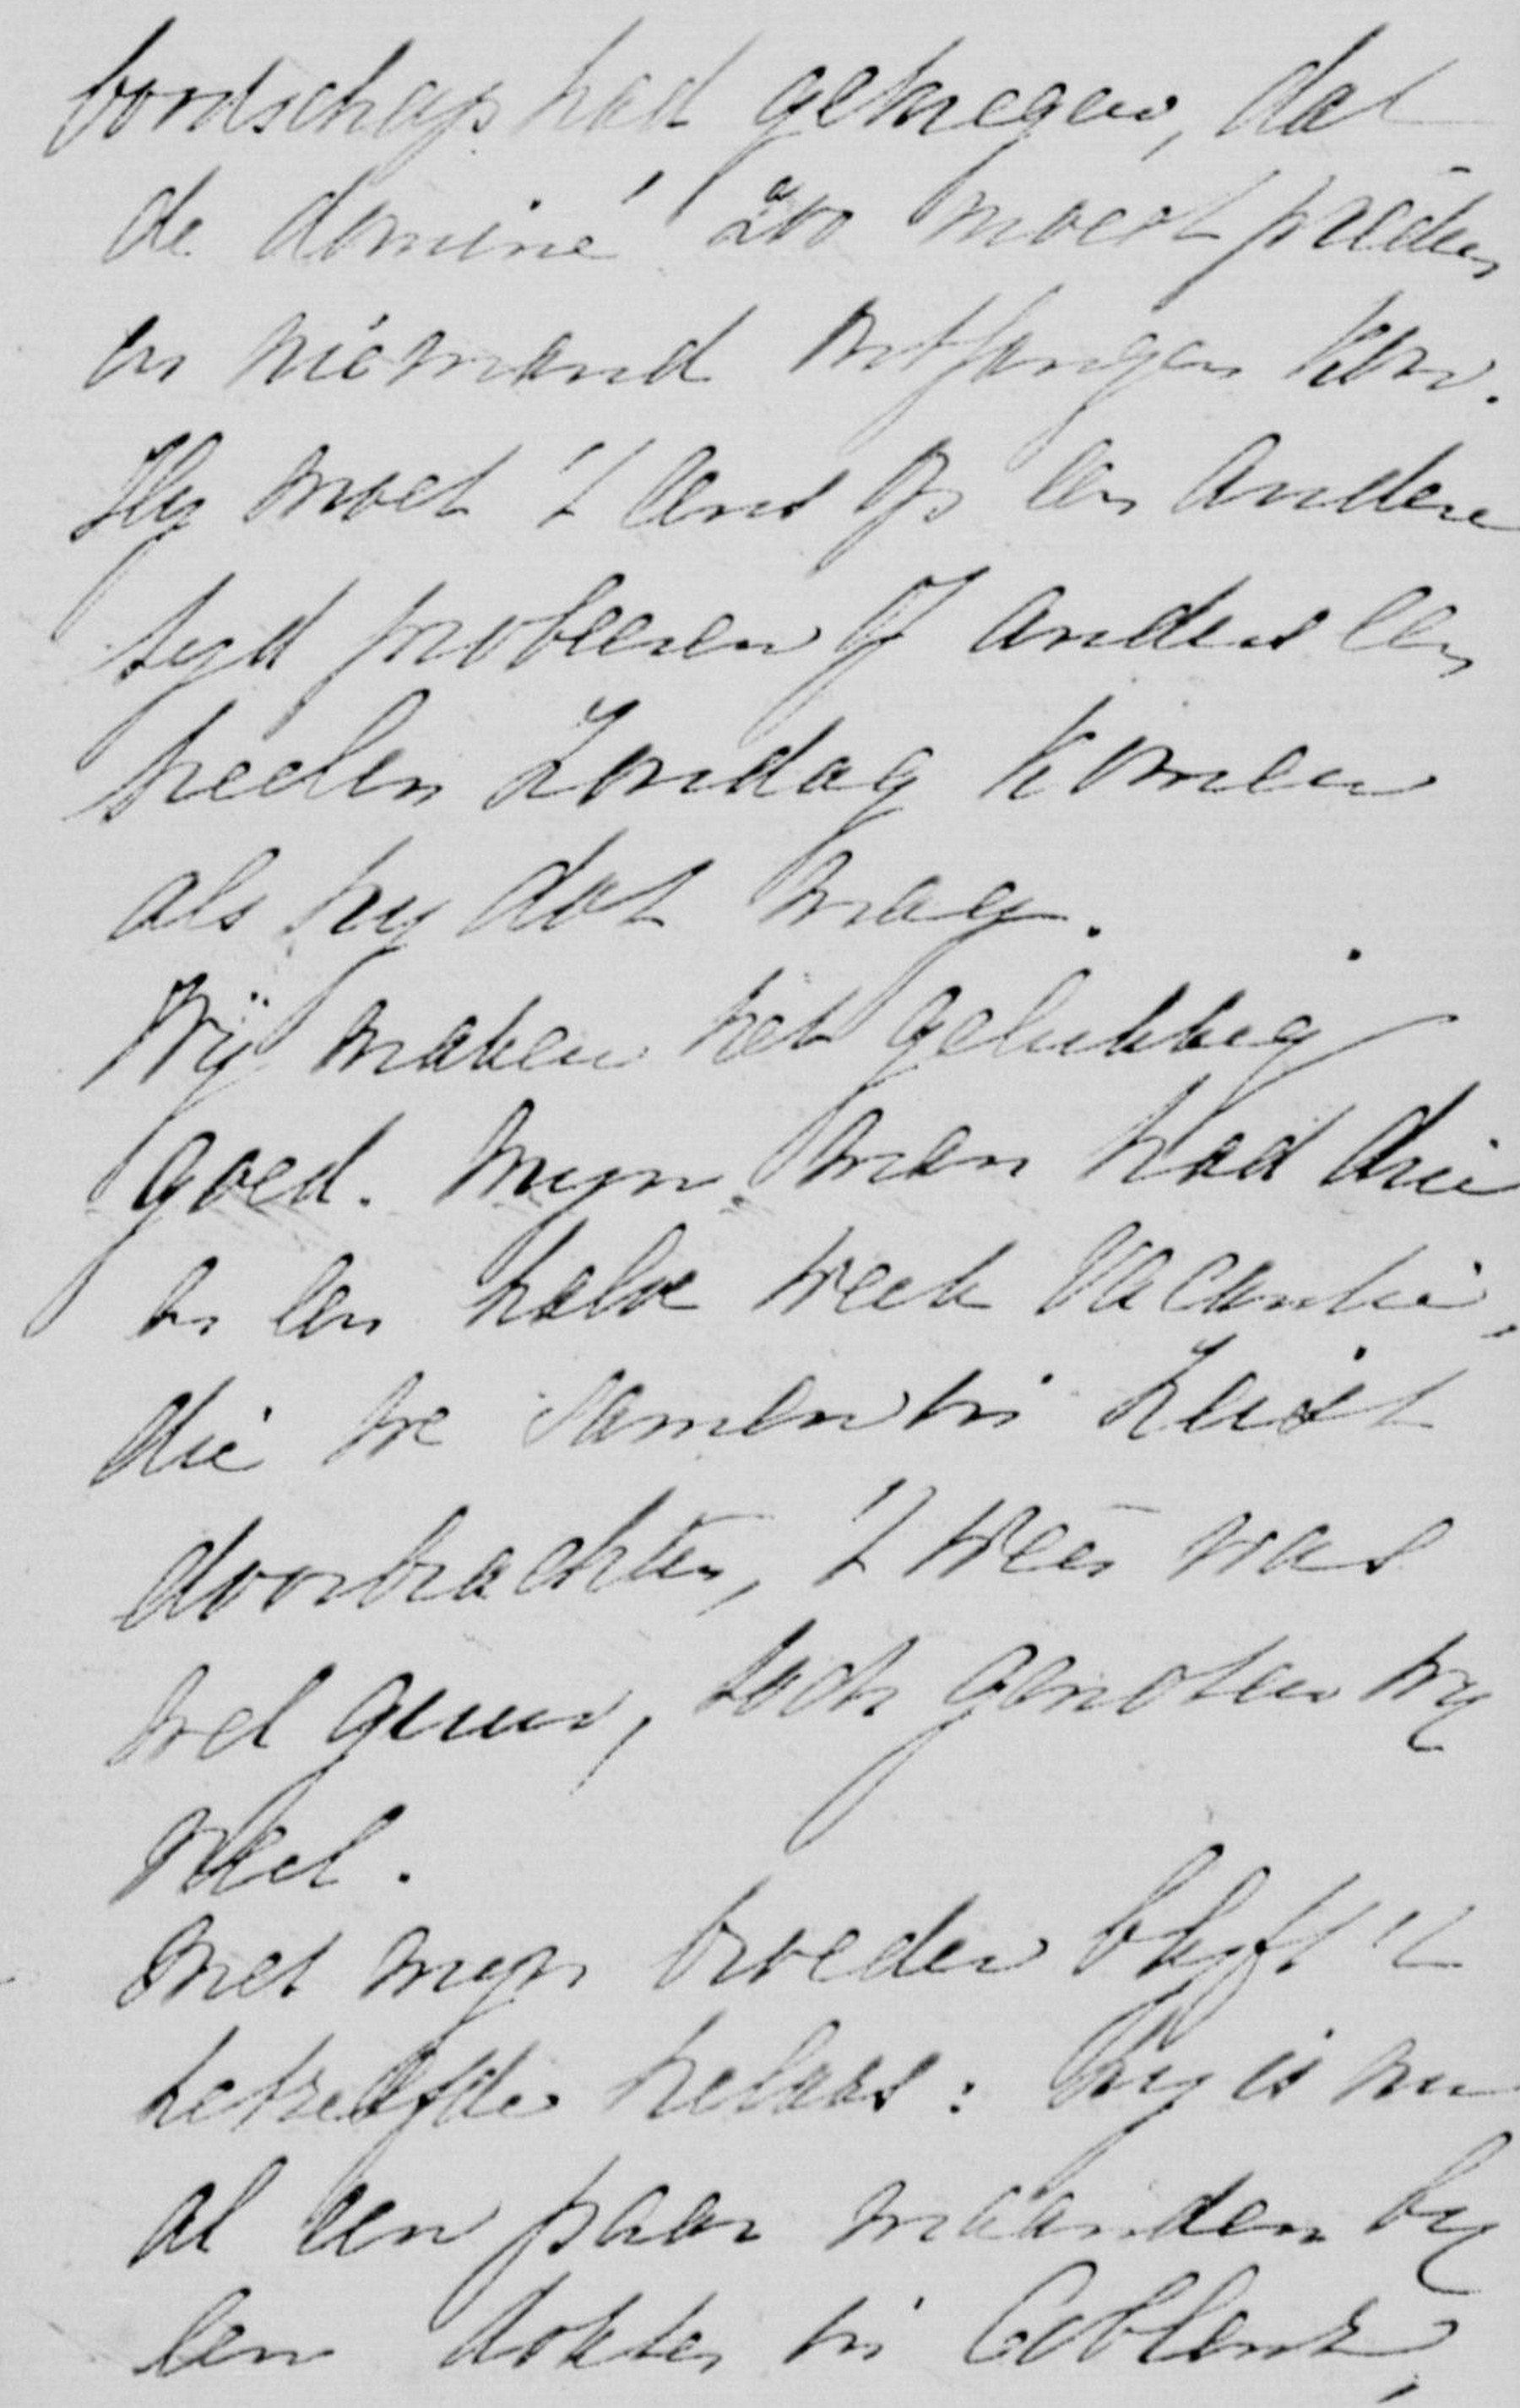 boodschap had gekregen, dat
de dominé zoo moest preeken
en niemand ontfangen kon.
Hy moet 't eens op een andere
tyd probeeren of anders een
heelen Zondag komen
als hy dat mag.
Wij maken het gelukkig
goed. Myn man had drie
en een halve week vacantie,
die we samen in Zeist
doorbrachten, 't weer was
wel guur, toch genoten wy
veel.
Met myn broeder blyft 't
hetzelfde helaas: hy is nu
al een paar maanden by
een dokter in Coblenz,